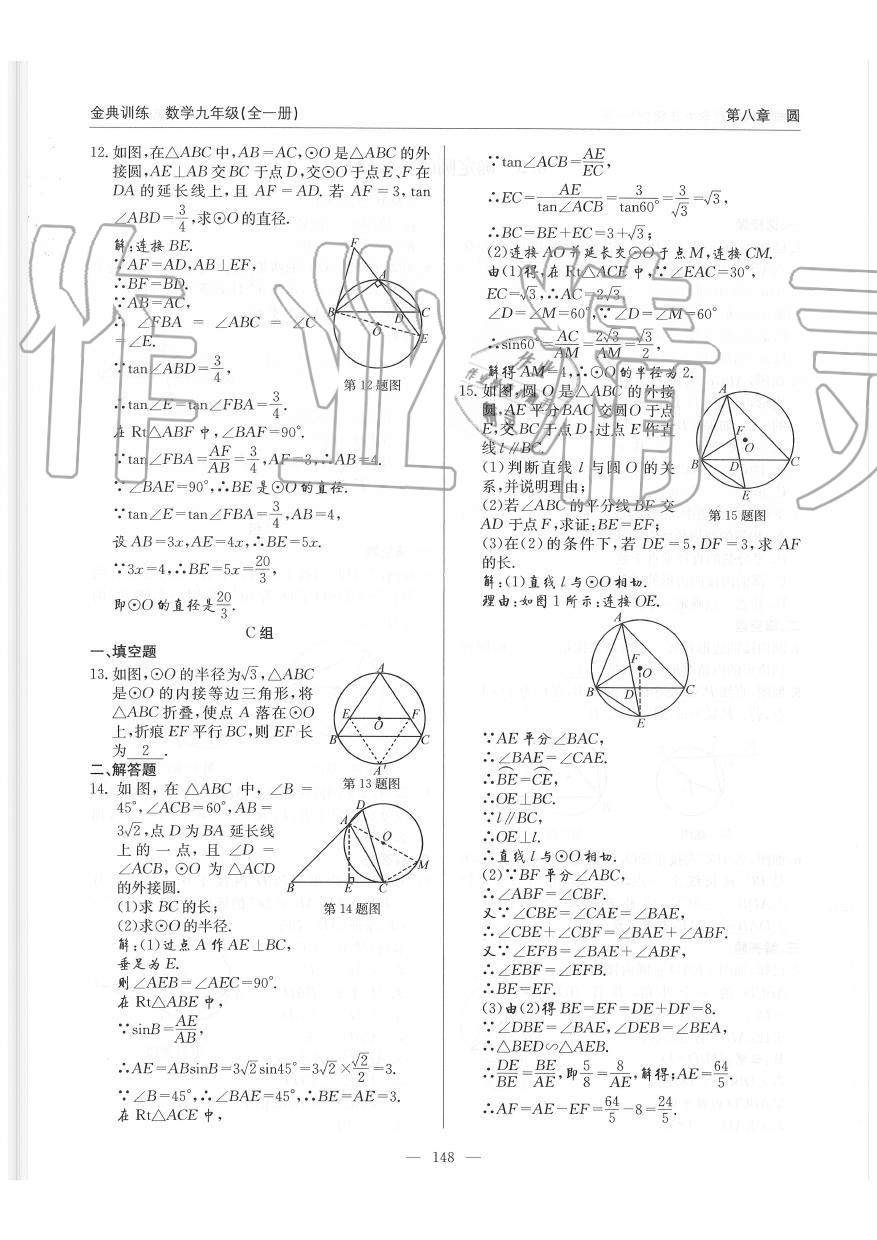 金典训练　数学九年级(全一册)
第八章　圆
12. 如图,在△ABC 中,AB=AC,⊙O 是△ABC 的外
接圆,AE⊥AB 交 BC 于点 D,交⊙O 于点 E、F 在
DA 的延长线上,且 AF=AD. 若 AF=3,tan
∠ABD=3/4,求⊙O 的直径.
解:连接 BE.
∵AF=AD,AB⊥EF,
∴BF=BD.
∵AB=AC,
∴ ∠FBA = ∠ABC = ∠C
=∠E.
∵tan∠ABD=3/4,
∴tan∠E=tan∠FBA=3/4.
在 Rt△ABF 中,∠BAF=90°.
∵tan∠FBA=AF/AB=3/4,AF=3,∴AB=4.
∵∠BAE=90°,∴BE 是⊙O 的直径.
∵tan∠E=tan∠FBA=3/4,AB=4,
设 AB=3x,AE=4x,∴BE=5x.
∵3x=4,∴BE=5x=20/3,
即⊙O 的直径是20/3.
F
A
B
C
D
O
E
第 12 题图
C 组
一、填空题
13. 如图,⊙O 的半径为√3,△ABC
是⊙O 的内接等边三角形,将
△ABC 折叠,使点 A 落在⊙O
上,折痕 EF 平行 BC,则 EF 长
为 2 .
A
E
O
F
B
C
A′
第 13 题图
二、解答题
14. 如图,在 △ABC 中,∠B =
45°,∠ACB=60°,AB=
3√2,点 D 为 BA 延长线
上的一点,且 ∠D =
∠ACB,⊙O 为 △ACD
的外接圆.
(1)求 BC 的长;
(2)求⊙O 的半径.
D
A
O
M
B
E
C
第 14 题图
解:(1)过点 A 作 AE⊥BC,
垂足为 E.
则∠AEB=∠AEC=90°.
在 Rt△ABE 中,
∵sinB=AE/AB,
∴AE=ABsinB=3√2 sin45°=3√2×√2/2=3.
∵∠B=45°,∴∠BAE=45°,∴BE=AE=3.
在 Rt△ACE 中,
∵tan∠ACB=AE/EC,
∴EC=AE/tan∠ACB=3/tan60°=3/√3=√3,
∴BC=BE+EC=3+√3;
(2)连接 AO 并延长交⊙O 于点 M,连接 CM.
由(1)得,在 Rt△ACE 中,∵∠EAC=30°,
EC=√3,∴AC=2√3
∠D=∠M=60°,∵∠D=∠M=60°
∴sin60°=AC/AM=2√3/AM=√3/2,
解得 AM=4,∴⊙O 的半径为 2.
15. 如图,圆 O 是△ABC 的外接
圆,AE 平分BAC 交圆O 于点
E,交 BC 于点 D,过点 E 作直
线 l∥BC.
(1)判断直线 l 与圆 O 的关
系,并说明理由;
(2)若∠ABC 的平分线 BF 交
AD 于点 F,求证:BE=EF;
(3)在(2)的条件下,若 DE=5,DF=3,求 AF
的长.
A
F
O
B
D
C
E
第 15 题图
解:(1)直线 l 与⊙O 相切.
理由:如图 1 所示:连接 OE.
A
F
O
B
D
C
E
∵AE 平分∠BAC,
∴∠BAE=∠CAE.
∴⌒BE=⌒CE,
∴OE⊥BC.
∵l∥BC,
∴OE⊥l.
∴直线 l 与⊙O 相切.
(2)∵BF 平分∠ABC,
∴∠ABF=∠CBF.
又∵∠CBE=∠CAE=∠BAE,
∴∠CBE+∠CBF=∠BAE+∠ABF.
又∵∠EFB=∠BAE+∠ABF,
∴∠EBF=∠EFB.
∴BE=EF.
(3)由(2)得 BE=EF=DE+DF=8.
∵∠DBE=∠BAE,∠DEB=∠BEA,
∴△BED∽△AEB.
∴DE/BE=BE/AE,即5/8=8/AE,解得;AE=64/5.
∴AF=AE-EF=64/5-8=24/5.
— 148 —
作业精灵